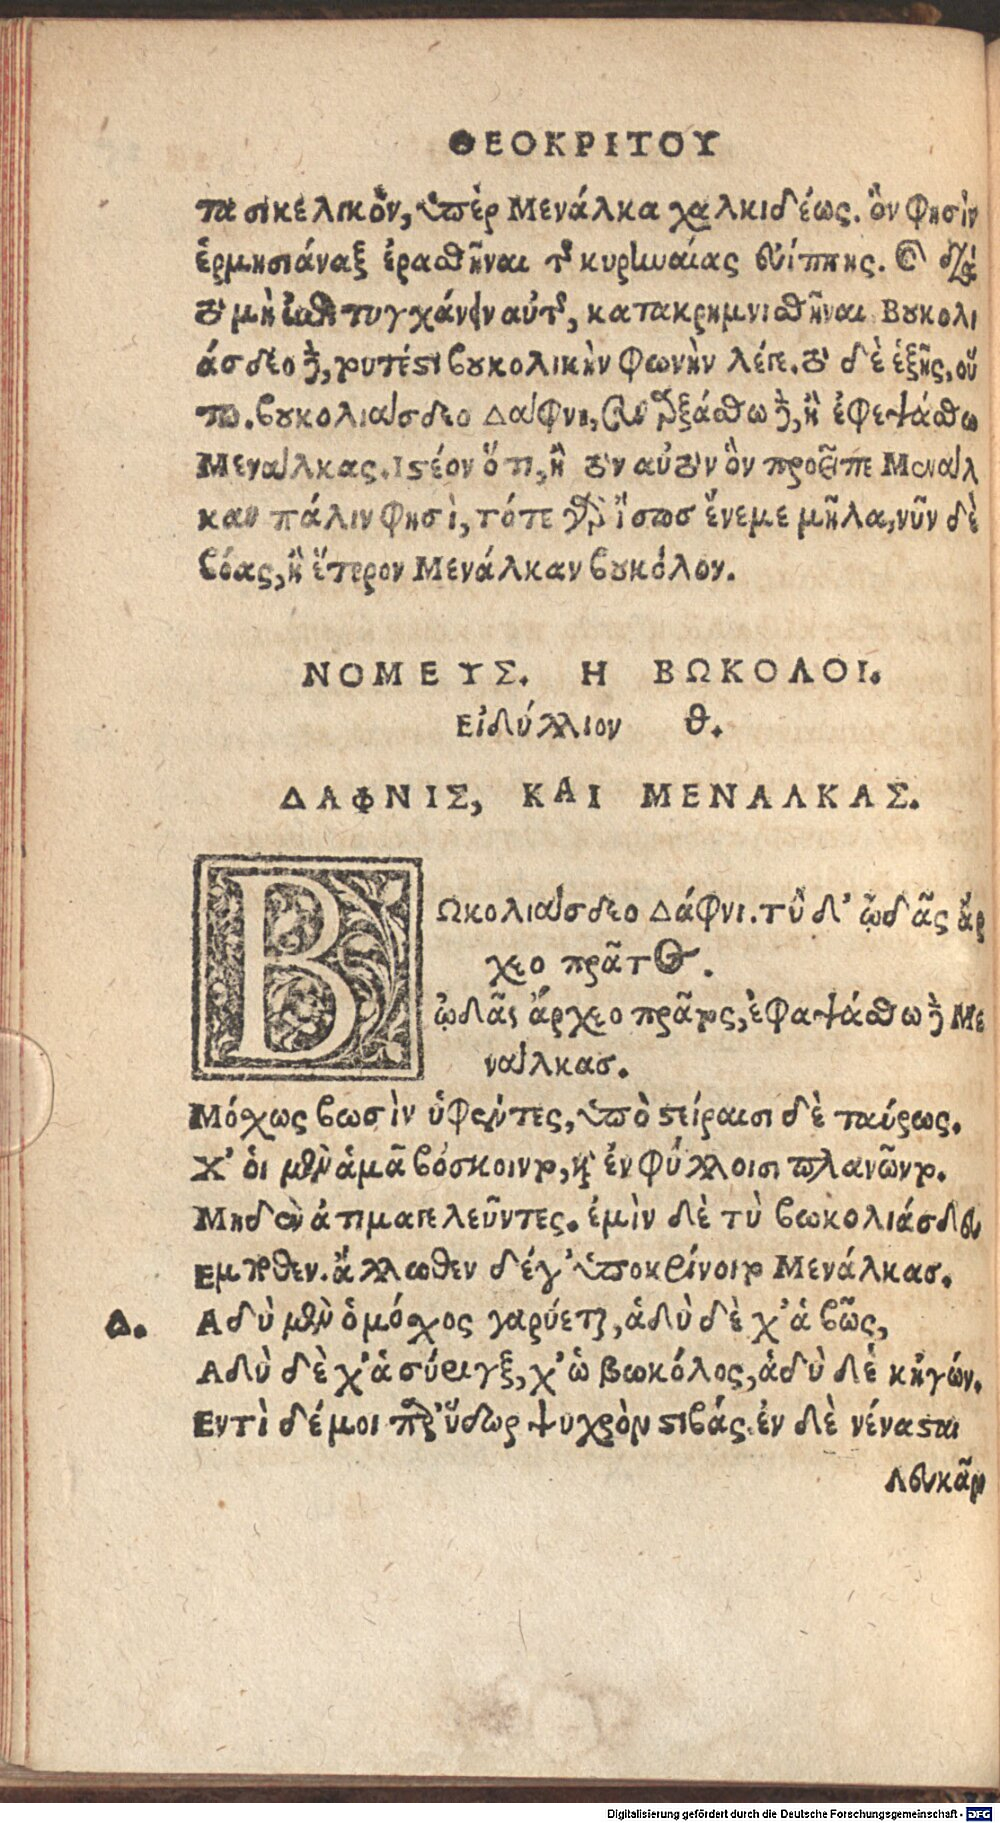 ΘΕΟΚΡΙΤΟΥ
τα σικελικὸν, ὑπὲρ Μενάλκα χαλκιδέως. ὃν φησὶν
ἑρμησιάναξ ἐρασθῆναι τῆς κυρηναίας εὐίππης. καὶ διὰ
τὸ μὴ ἐπιτυγχάνειν αὐτῆς, κατακρημνισθῆναι Βουκολι
άσδεο δὲ, τουτέστι βουκολικὴν φωνὴν λέγε. τὸ δὲ ἑξῆς, οὕ
τω. βουκολιάσδεο Δάφνι, καὶ ἀρξάσθω δὲ, ἢ ἐφεψάσθω
Μενάλκας. Ιστέον ὅτι, ἢ τὸν αὐτὸν ὃν προεῖπε Μενάλ
καν πάλιν φησὶ, τότε γὰρ ἴσωσ ἔνεμε μῆλα, νῦν δὲ
βόας, ἢ ἕτερον Μενάλκαν βουκόλον.
ΝΟΜΕΥΣ. Η ΒΩΚΟΛΟΙ.
Εἰδύλλιον θ.
ΔΑΦΝΙΣ, ΚΑΙ ΜΕΝΑΛΚΑΣ.
ΒΩκολιάσδεο Δάφνι. τὺ δ' ᾠδᾶς ἄρ
χεο πρᾶτος.
ᾠδᾶς ἄρχεο πρᾶτος, ἐφαψάσθω δὲ Με
νάλκασ.
Μόχως βωσὶν ὑφέντες, ὑπὸ στείραισι δὲ ταύρως.
Χ' ὁι μὲν ἁμᾶ βόσκοιντο, καὶ ἐν φύλλοισι πλανῶντο.
Μηδὲν ἀτιμαγελεῦντες. ἐμὶν δὲ τὺ βωκολιάσδευ
Εμπροθεν. ἄλλωθεν δέ γ' ὑποκρίνοιτο Μενάλκασ.
Δ. Αδὺ μὲν ὁ μόχος γαρύεται, ἁδὺ δὲ χ' ἁ βῶς,
Αδὺ δὲ χ' ἁ σύριγξ, χ' ὡ βωκόλος, ἁδὺ δὲ κἠγών.
Εντὶ δέ μοι παρ' ὕδωρ ψυχρὸν στιβάς. ἐν δὲ νένασται
Λευκᾶν
Digitalisierung gefördert durch die Deutsche Forschungsgemeinschaft - DFG